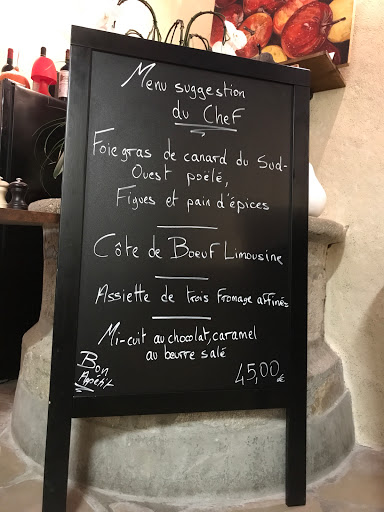 Menu suggestion
du Chef
Foie gras de canard du Sud-
Ouest poëlé,
Figues et pain d'épices
Côte de Boeuf Limousine
Assiette de trois fromage affinés
Mi-cuit au chocolat, caramel
au beurre salé
Bon
Appétit
45,00€